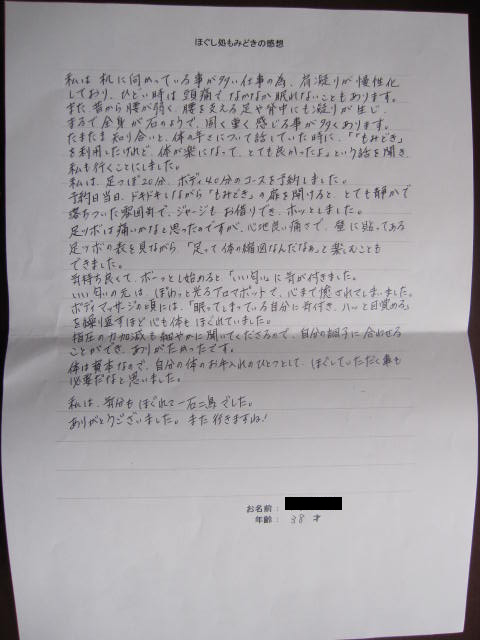 ほぐし処もみどきの感想
私は机に向かっている事が多い仕事の為、肩凝りが慢性化
しており、ひどい時は頭痛でなかなか眠れないこともあります。
また昔から腰が弱く、腰を支える足や背中にも凝りが生じ、
まるで全身が石のようで、固く重く感じる事が多くあります。
たまたま知り合いと、体の辛さについて話していた時に、「「もみどき」
を利用したけれど、体が楽になって、とても良かったよ」という話を聞き、
私も行くことにしました。
私は、足つぼ20分、ボディ40分のコースを予約しました。
予約日当日、ドキドキしながら「もみどき」の扉を開けると、とても静かで
落ちついた雰囲気で、ジャージもお借りでき、ホッとしました。
足ツボは痛いかなと思ったのですが、心地良い痛さで、壁に貼ってある
足ツボの表を見ながら、「足って体の縮図なんだなぁ」と楽しむことも
できました。
気持ち良くて、ボーっとし始めると、「いい匂い」に気が付きました。
いい匂いの元は、ぽわっと光るアロマポットで、心まで癒されてしまいました。
ボディマッサージの頃には、「眠ってしまっている自分に気付き、ハッと目覚める」
を繰り返すほど心も体もほぐれていました。
指圧の力加減も細やかに聞いてくださるので、自分の調子に合わせる
ことができ、ありがたかったです。
体は資本なので、自分の体のお手入れのひとつとして、ほぐしていただく事も
必要だなと思いました。
私は、気分もほぐれて一石二鳥でした。
ありがとうございました。また行きますね!
お名前:
年齢: 38 才